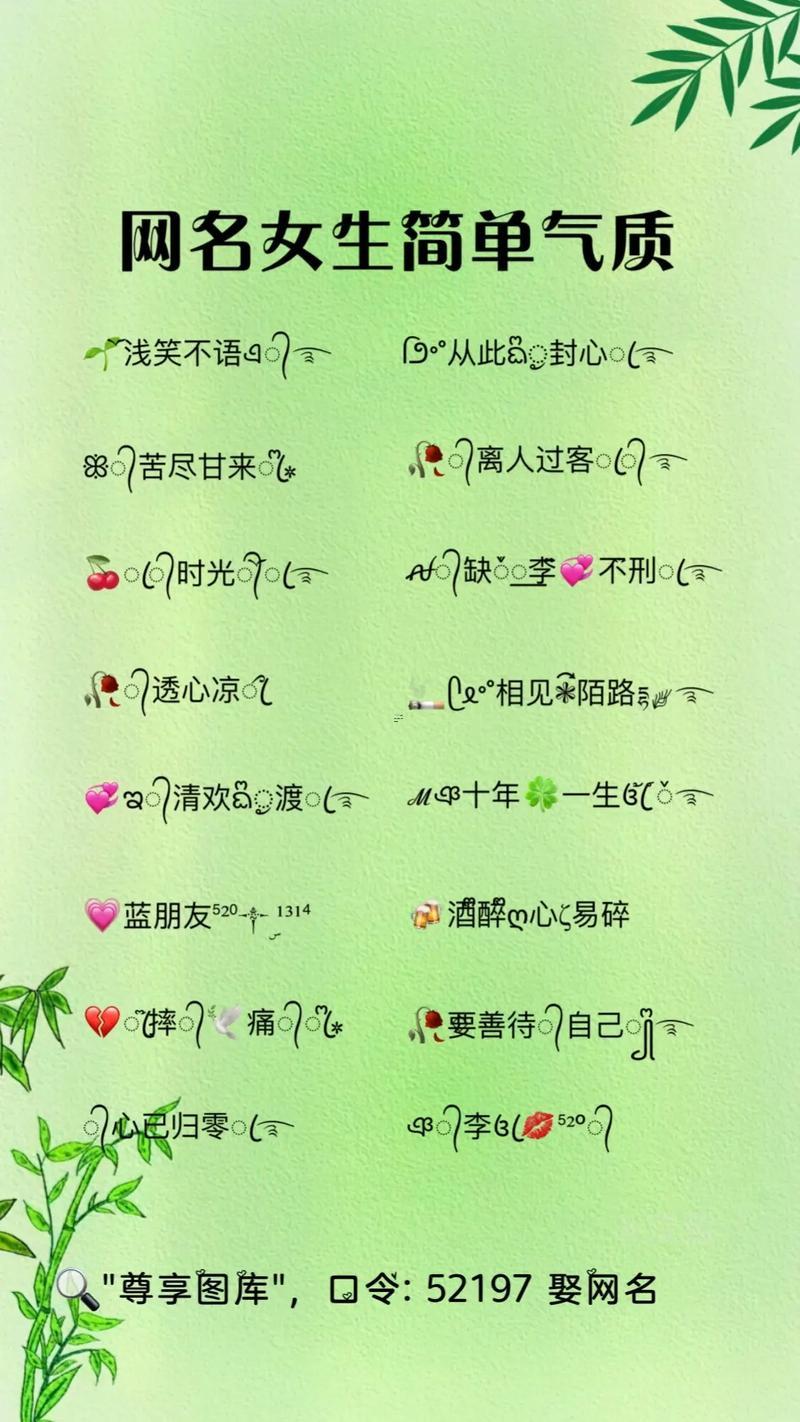 网名女生简单气质
🌱浅笑不语 从此封心
苦尽甘来 🥀离人过客
🍒时光 缺李💞不刑
🥀透心凉 🚬相见陌路
💞清欢渡 十年🍀一生
💗蓝朋友⁵²⁰ ¹³¹⁴ 🍻酒醉ღ心ζ易碎
💔摔🕊痛 🥀要善待自己
心已归零 李💋⁵²⁰
🔍"尊享图库"，口令: 52197 娶网名